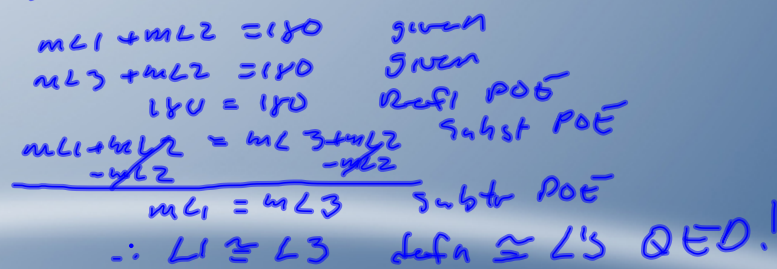 m∠1 + m∠2 = 180 given
m∠3 + m∠2 = 180 given
180 = 180 Refl POE
m∠1 + m∠2 = m∠3 + m∠2 Subst POE
-m∠2 -m∠2
m∠1 = m∠3 Subtr POE
∴ ∠1 ≅ ∠3 defn ≅ ∠'s QED!